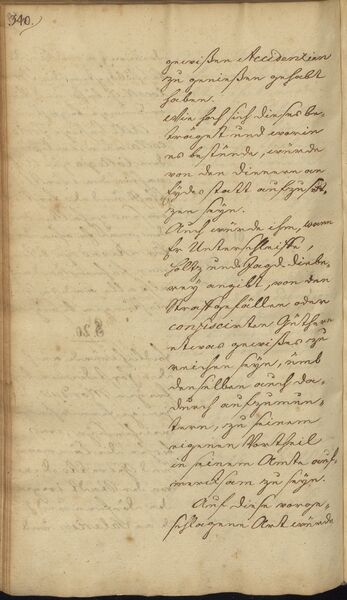 340.
gewißen Accidentien
zu genießen gehabt
haben.
Wie hoch sich dieses be-
träget und worin
es bestünde, würde
von den Dienern an
Eydes statt aufzuse-
zen seyn.
Auch würde ihm, wann
Er Unterschleiffe,
Holtz und Jagd Diebe-
rey angibt, von den
Straffgefällen oder
confiscirten Güthern
etwas gewißes zu
reichen seyn, umb
denselben auch da-
durch aufzumun-
tern, zu seinem
eigenen Vortheil
in seinem Amte auf-
mercksam zu seyn.
Auf diese vorge-
schlagene Art würde